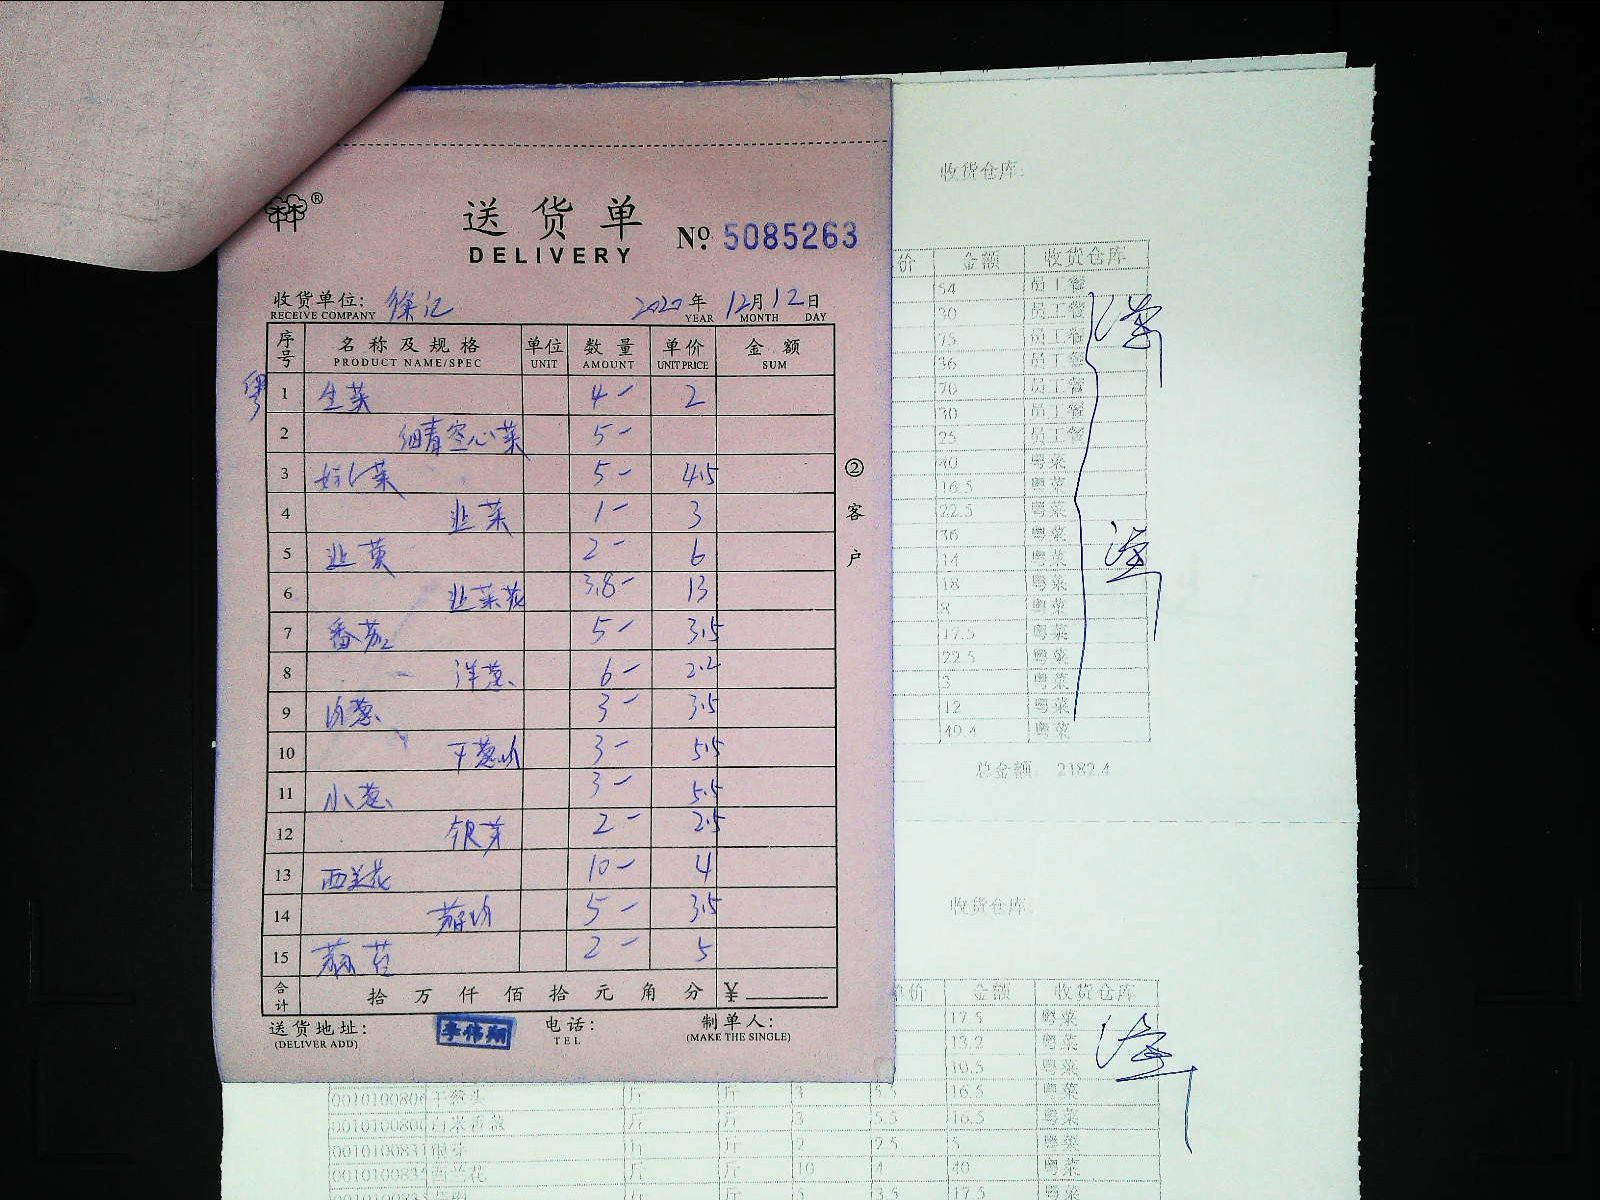 送货单
DELIVERY
No. 5085263
收货单位: 徐记 2020年12月12日
RECEIVE COMPANY YEAR MONTH DAY
序号 名称及规格 单位 数量 单价 金额
PRODUCT NAME/SPEC UNIT AMOUNT UNIT PRICE SUM
粤
1 生菜 4- 2
2 细青空心菜 5-
3 菜 5- 4.5
4 韭菜 1- 3
5 韭黄 2- 6
6 韭菜花 3.8- 13
7 番茄 5- 3.5
8 洋葱 6- 2.2
9 葱 3- 3.5
10 干葱 3- 5.5
11 小葱 3- 5.5
12 银芽 2- 2.5
13 西兰花 10- 4
14 5- 3.5
15 2- 5
合计 拾万仟佰拾元角分 ¥
送货地址: 电话: 制单人:
(DELIVER ADD) TEL (MAKE THE SINGLE)
李伟翔
②客户
收货仓库:
价 金额 收货仓库
54 员工餐
30 员工餐
75 员工餐
36 员工餐
70 员工餐
30 员工餐
25 员工餐
40 粤菜
16.5 粤菜
22.5 粤菜
36 粤菜
14 粤菜
18 粤菜
8 粤菜
17.5 粤菜
22.5 粤菜
3 粤菜
12 粤菜
49.4 粤菜
总金额: 2182.4
收货仓库:
单价 金额 收货仓库
17.5 粤菜
13.2 粤菜
10.5 粤菜
干葱头 斤 斤 3 5.5 16.5 粤菜
斤 斤 3 5.5 16.5 粤菜
银芽 斤 斤 2 2.5 5 粤菜
西兰花 斤 斤 10 4 40 粤菜
斤 斤 5 3.5 17.5 粤菜